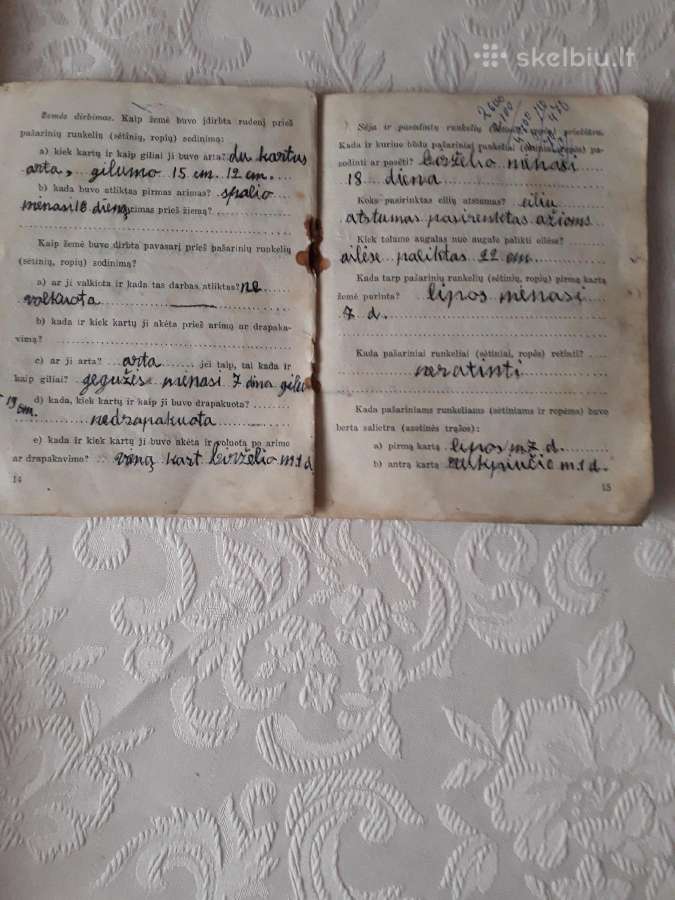 skelbiu.lt
Žemės dirbimas. Kaip žemė buvo įdirbta rudenį prieš
pašarinių runkelių (sėtinių, ropių) sodinimą:
a) kiek kartų ir kaip giliai ji buvo arta? du kartus
arta, gilumo 15 cm. 12 cm.
b) kada buvo atliktas pirmas arimas? spalio
mėnasi 18 dieną arimas prieš žiemą?
Kaip žemė buvo dirbta pavasarį prieš pašarinių runkelių
(sėtinių, ropių) sodinimą?
a) ar ji valkiota ir kada tas darbas atliktas? ne
valkuota
b) kada ir kiek kartų ji akėta prieš arimą ar drapaka-
vimą?
c) ar ji arta? arta jei taip, tai kada ir
kaip giliai? gegužės mėnasi 7 dina gilu
19 cm.
d) kada, kiek kartų ir kaip ji buvo drapakuota?
nedrapakuota
e) kada ir kiek kartų ji buvo akėta ir voluota po arimo
ar drapakavimo? viną kart birželio m 1 d
14
2600
100
470
Sėja ir pasėlių runkelių priežiūra.
Kada ir kuriuo būdu pašariniai runkeliai pa-
sodinti ar pasėti? birželio mėnasi
18 diena
Koks pasirinktas eilių atstumas? eiliu
atstumas pasirenktas ažioms
Kiek tolumo augalas nuo augalo palikti eilėse?
ailėse paliktas 22 cm.
Kada tarp pašarinių runkelių (sėtinių, ropių) pirmą kartą
žemė purinta? lipos mėnasi
7 d.
Kada pašariniai runkeliai (sėtiniai, ropės) retinti?
neratinti
Kada pašariniams runkeliams (sėtiniams ir ropėms) buvo
berta salietra (azotinės trąšos):
a) pirmą kartą lipos m 7 d.
b) antrą kartą rukpiučio m 1 d.
15